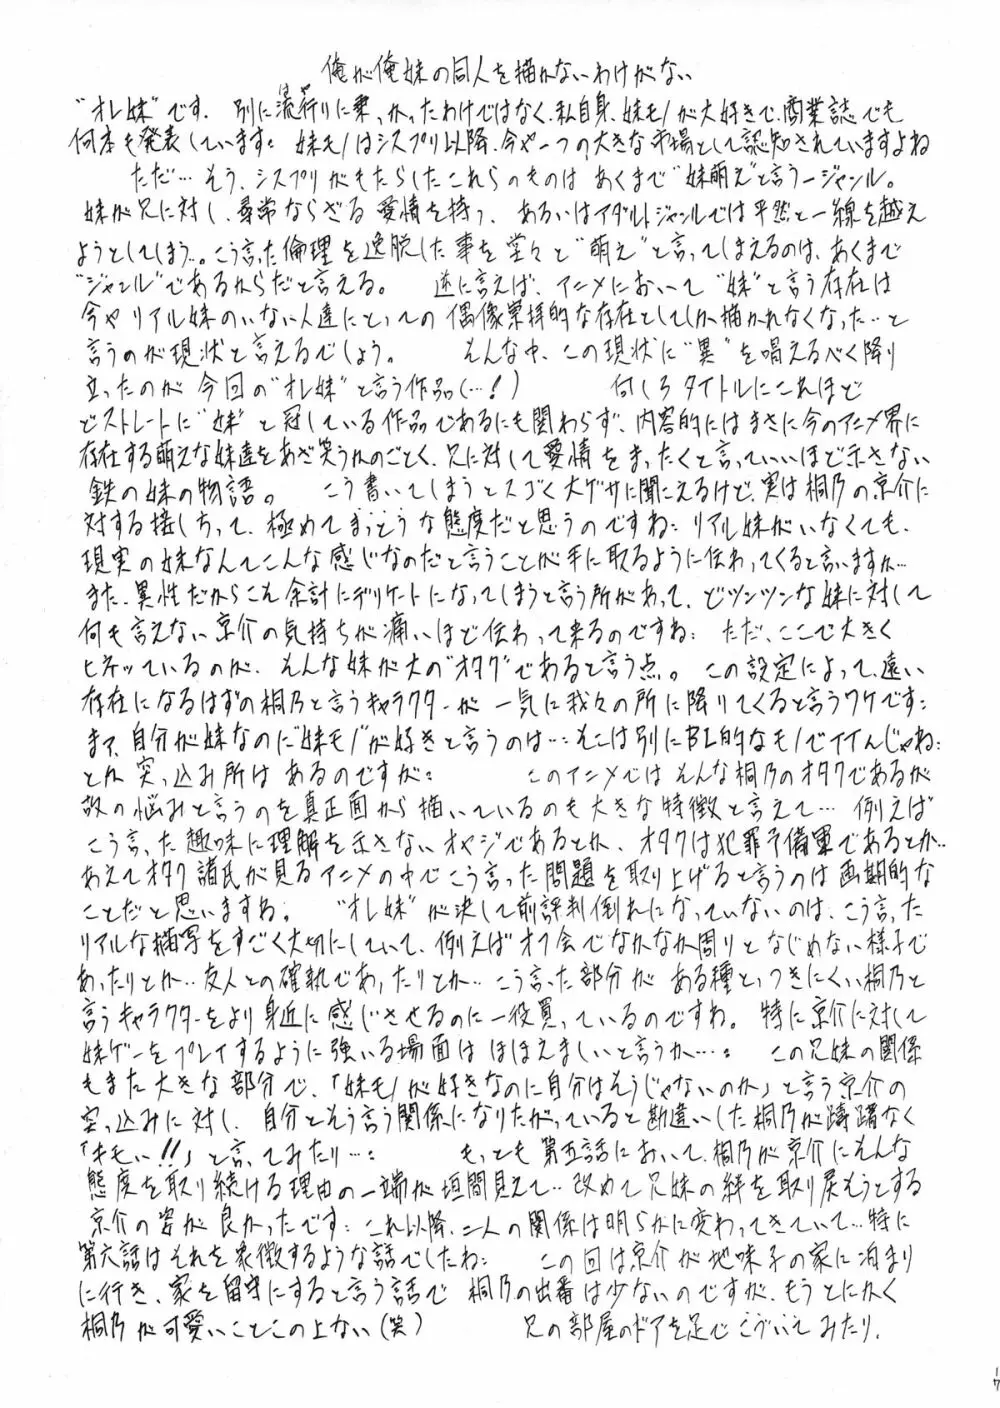 俺が俺妹の同人を描かないわけがない
"オレ妹"です. 別に流行りに乗っかったわけではなく、私自身、妹モノが大好きで、商業誌でも
何本も発表しています: 妹モノはシスプリ以降、今や一つの大きな市場として認知されていますよね
ただ… そう、シスプリがもたらしたこれらのものは あくまで"妹萌え"と言う一ジャンル。
妹が兄に対し、尋常ならざる愛情を持つ、あるいはアダルトジャンルでは平然と一線を越え
ようとしてしまう…。こう言った倫理を逸脱した事を堂々と"萌え"と言ってしまえるのは、あくまで
"ジャンル"であるからだと言える。 逆に言えば、アニメにおいて"妹"と言う存在は
今やリアル妹のいない人達にとっての偶像崇拝的な存在としてしか描かれなくなった…と
言うのが現状と言えるでしょう。 そんな中、この現状に"異"を唱えるべく降り
立ったのが今回の"オレ妹"と言う作品(…!) 何しろタイトルにこれほど
どストレートに"妹"と冠している作品であるにも関わらず、内容的にはまさに今のアニメ界に
存在する萌えな妹達をあざ笑うかのごとく、兄に対して愛情をまったくと言っていいほど示さない
鉄の妹の物語。 こう書いてしまうとスゴく大ゲサに聞こえるけど、実は桐乃の京介に
対する接し方って、極めてまっとうな態度だと思うのですね: リアル妹がいなくても、
現実の妹なんてこんな感じなのだと言うことが手に取るように伝わってくると言いますか…
また、異性だからこそ余計にデリケートになってしまうと言う所があって、どツンツンな妹に対して
何も言えない京介の気持ちが痛いほど伝わって来るのですね: ただ、ここで大きく
ヒネっているのが、そんな妹が大の"オタク"であると言う点。 この設定によって、遠い
存在になるはずの桐乃と言うキャラクターが一気に我々の所に降りてくると言うワケです:
まァ、自分が妹なのに"妹モノ"が好きと言うのは…: そこは別にBL的なモノでイイんじゃね:
とか 突っ込み所はあるのですが: このアニメではそんな桐乃のオタクであるが
故の悩みと言うのを真正面から描いているのも大きな特徴と言えて… 例えば
こう言った趣味に理解を示さないオヤジであるとか、オタクは犯罪予備軍であるとか‥
あえてオタク諸氏が見るアニメの中でこう言った問題を取り上げると言うのは画期的な
ことだと思いますね。 "オレ妹"が決して前評判倒れになっていないのは、こう言った
リアルな描写をすごく大切にしていて、例えばオフ会でなかなか周りとなじめない様子で
あったりとか‥友人との確執であったりとか‥こう言った部分がある種とっつきにくい桐乃と
言うキャラクターをより身近に感じさせるのに一役買っているのですね。 特に京介に対して
妹ゲーをプレイするように強いる場面はほほえましいと言うか…: この兄妹の関係
もまた大きな部分で、「妹モノが好きなのに自分はそうじゃないのか」と言う京介の
突っ込みに対し、自分とそう言う関係になりたがっていると勘違いした桐乃が躊躇なく
「キモい!!」と言ってみたり…: もっとも第五話において、桐乃が京介にそんな
態度を取り続ける理由の一端が垣間見えて‥改めて兄妹の絆を取り戻そうとする
京介の姿が良かったです: これ以降、二人の関係は明らかに変わってきていて…特に
第六話はそれを象徴するような話でしたね: この回は京介が地味子の家に泊まり
に行き、家を留守にすると言う話で 桐乃の出番は少ないのですが、もうとにかく
桐乃が可愛いことこの上ない(笑) 兄の部屋のドアを足でこづいてみたり、
17